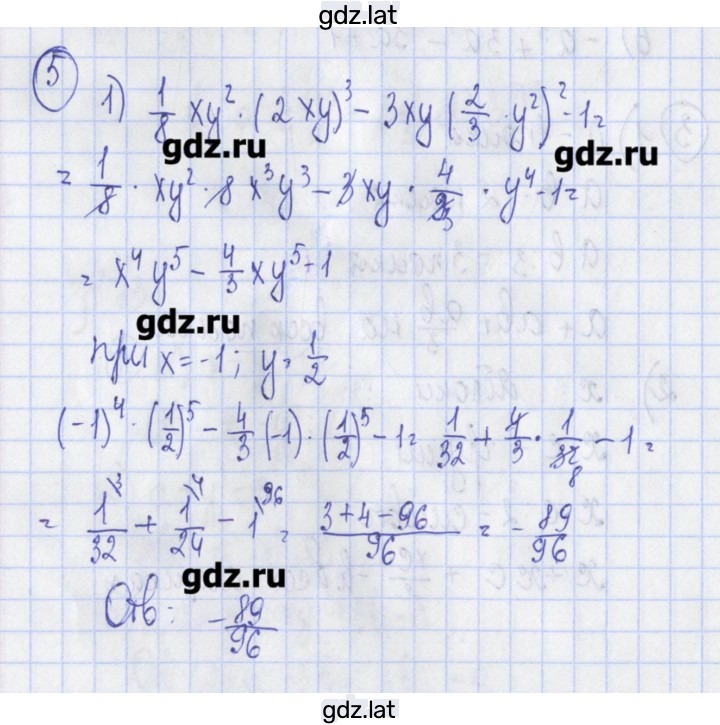 gdz.lat
5
1) 1/8 xy² · (2xy)³ − 3xy (2/3 · y²)² − 1 =
gdz.ru gdz.ru
= 1/8 · xy² · 8x³y³ − 3xy · 4/9 3 · y⁴ − 1 =
= x⁴y⁵ − 4/3 xy⁵ + 1
gdz.ru
при x = −1; y = 1/2
(−1)⁴ · (1/2)⁵ − 4/3 (−1) · (1/2)⁵ − 1 = 1/32 + 4/3 · 1/32 8 − 1 =
= 1/32 \3 + 1/24 \4 − 1 \96 = (3 + 4 − 96)/96 = − 89/96
gdz.ru
Отв: − 89/96
gdz.lat